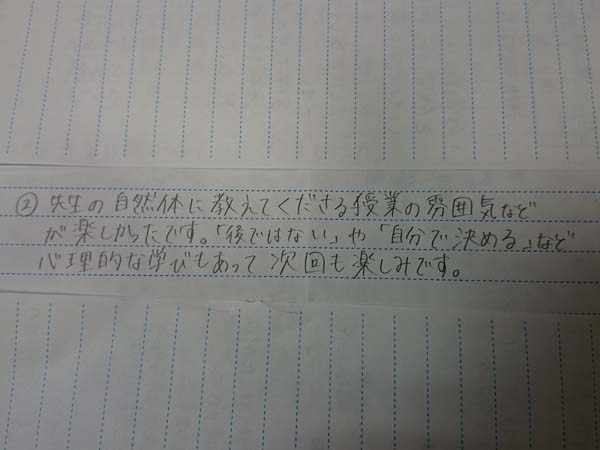 ② 先生の自然体に教えてくださる授業の雰囲気など
が楽しかったです。「後ではない」や「自分で決める」など
心理的な学びもあって次回も楽しみです。